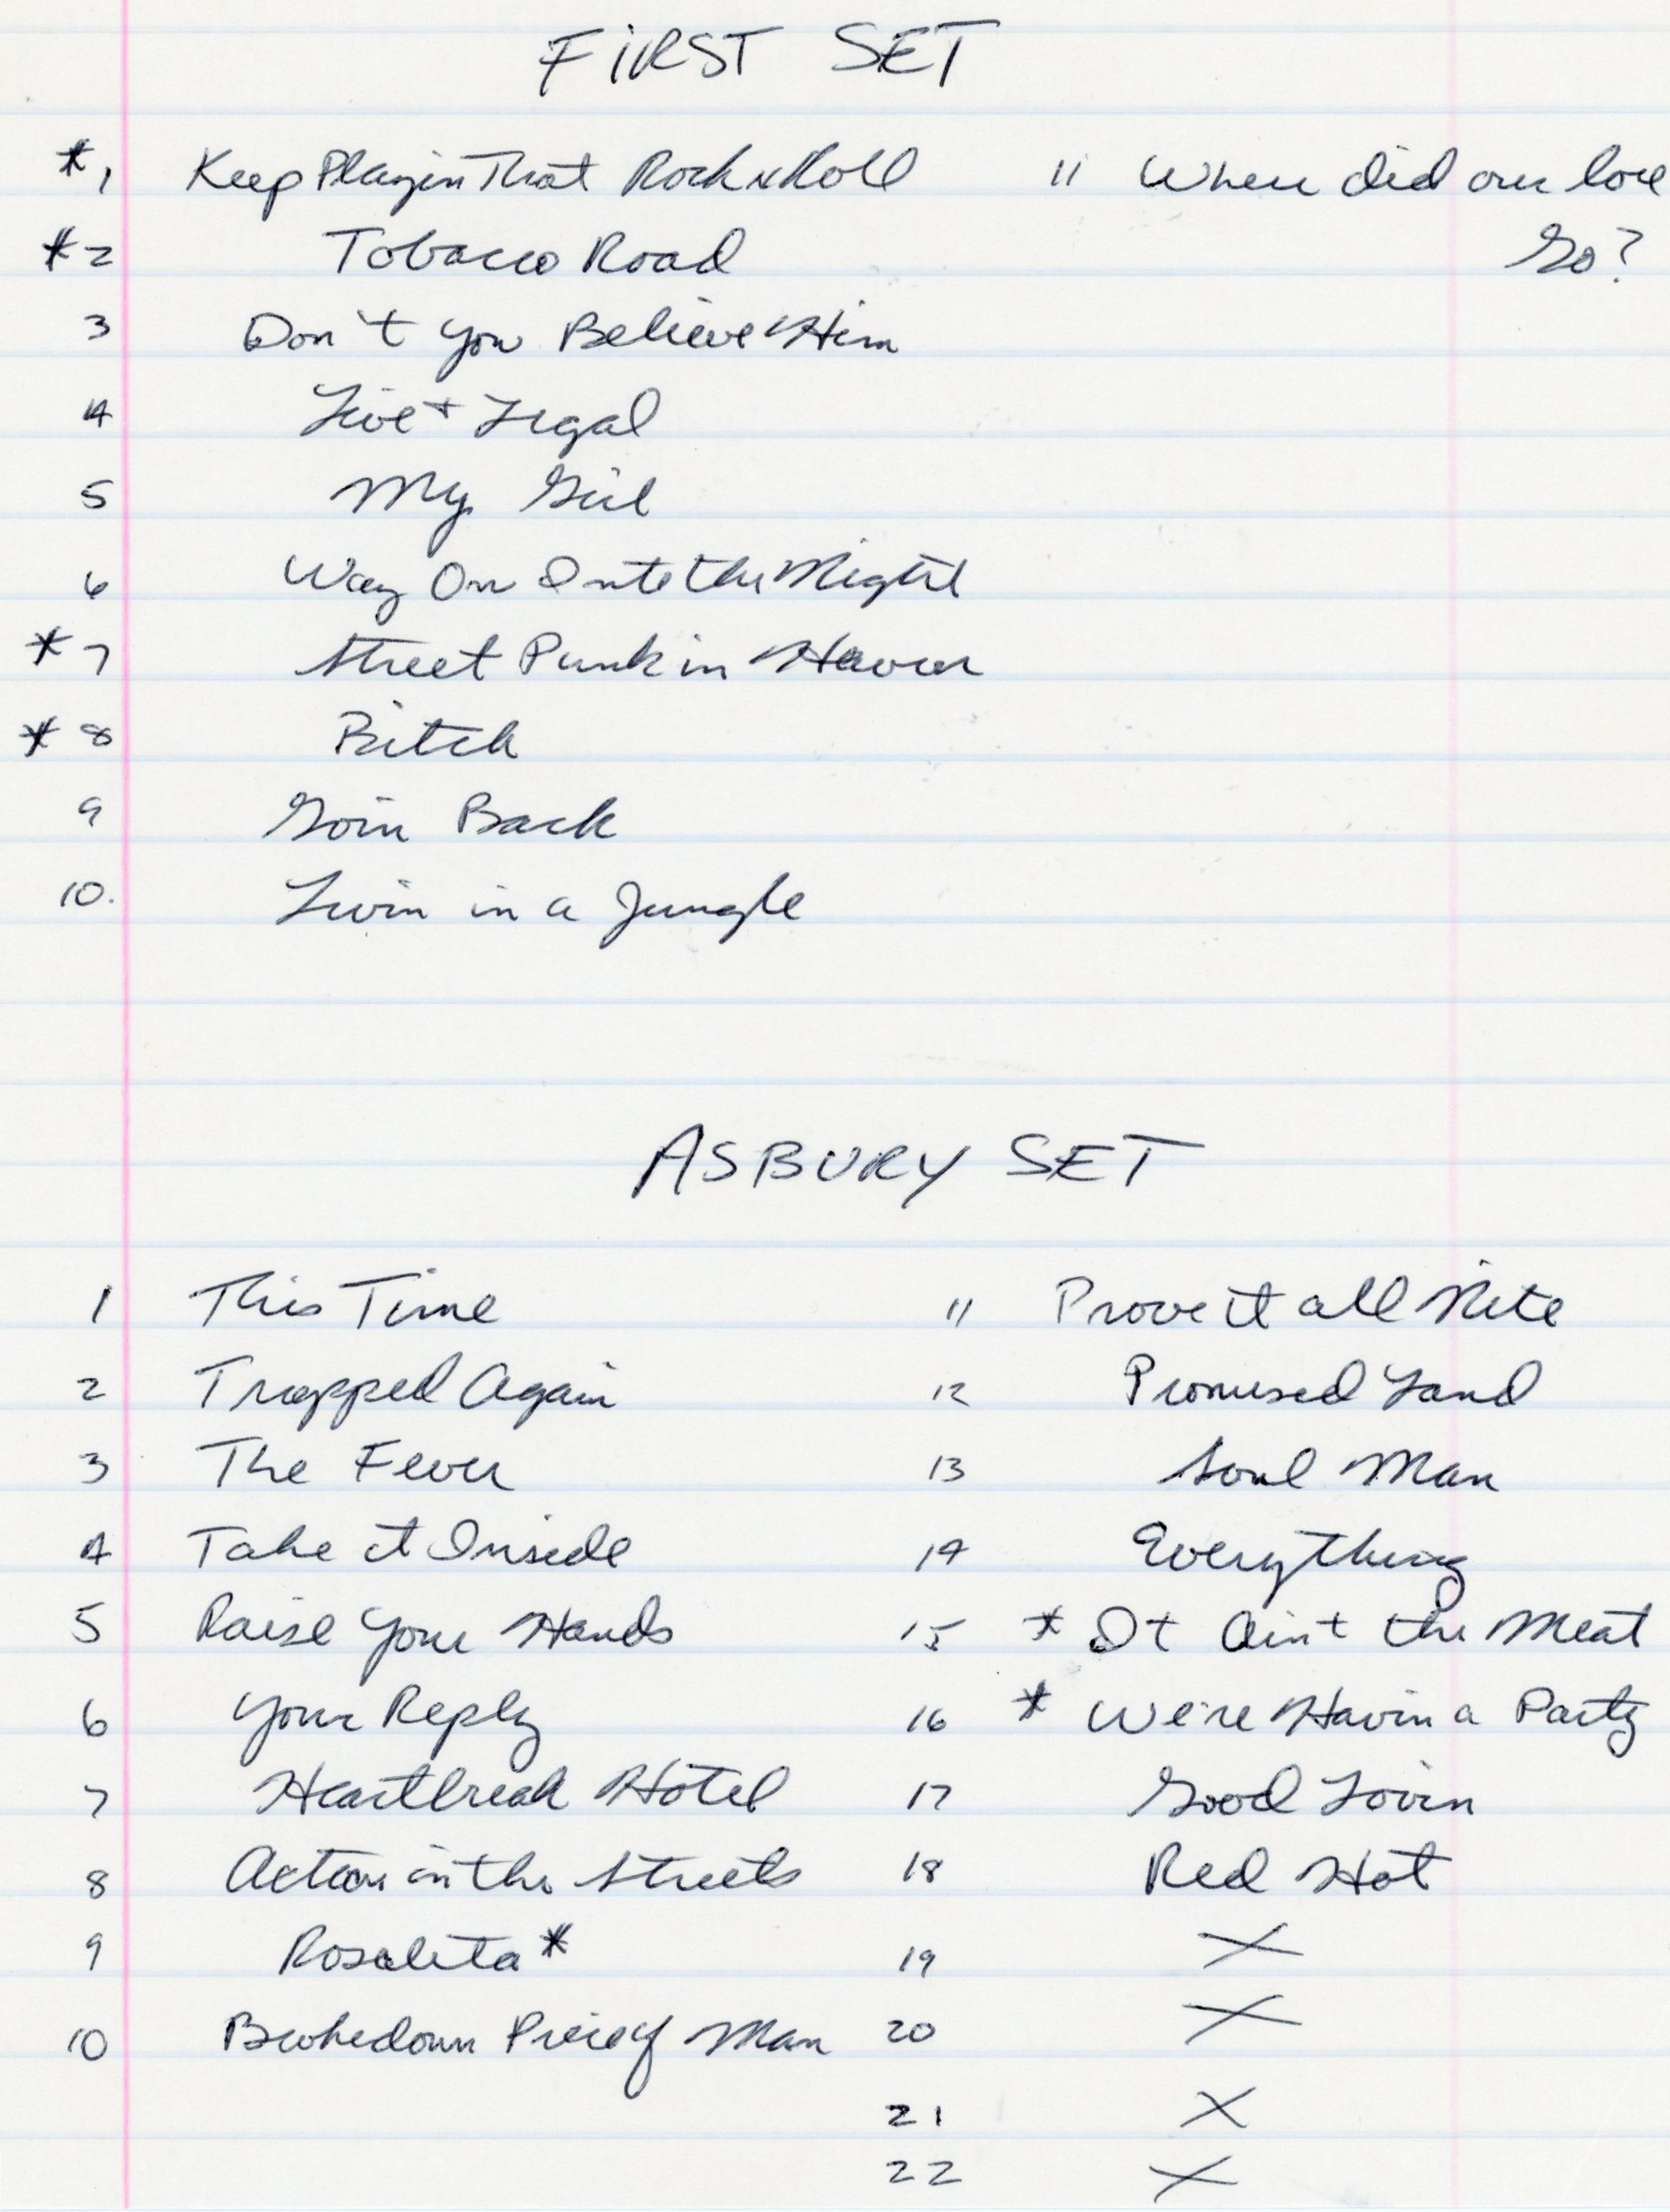 FIRST SET
*1 Keep Playin That Rock n Roll
11 Where did our love
Go?
*2 Tobacco Road
3 Don't You Believe Him
4 Live + Legal
5 My Girl
6 Way On Into the Night
*7 Street Punk in Heaven
*8 Bitch
9 Goin Back
10. Livin in a Jungle
ASBURY SET
1 This Time
2 Trapped Again
3 The Fever
4 Take it Inside
5 Raise Your Hands
6 Your Reply
7 Heartbreak Hotel
8 Action in the Streets
9 Rosalita *
10 Brokedown Piece of Man
11 Prove it all Nite
12 Promised Land
13 Soul Man
14 Everything
15 * It Ain't the Meat
16 * We're Havin a Party
17 Good Lovin
18 Red Hot
19 X
20 X
21 X
22 X